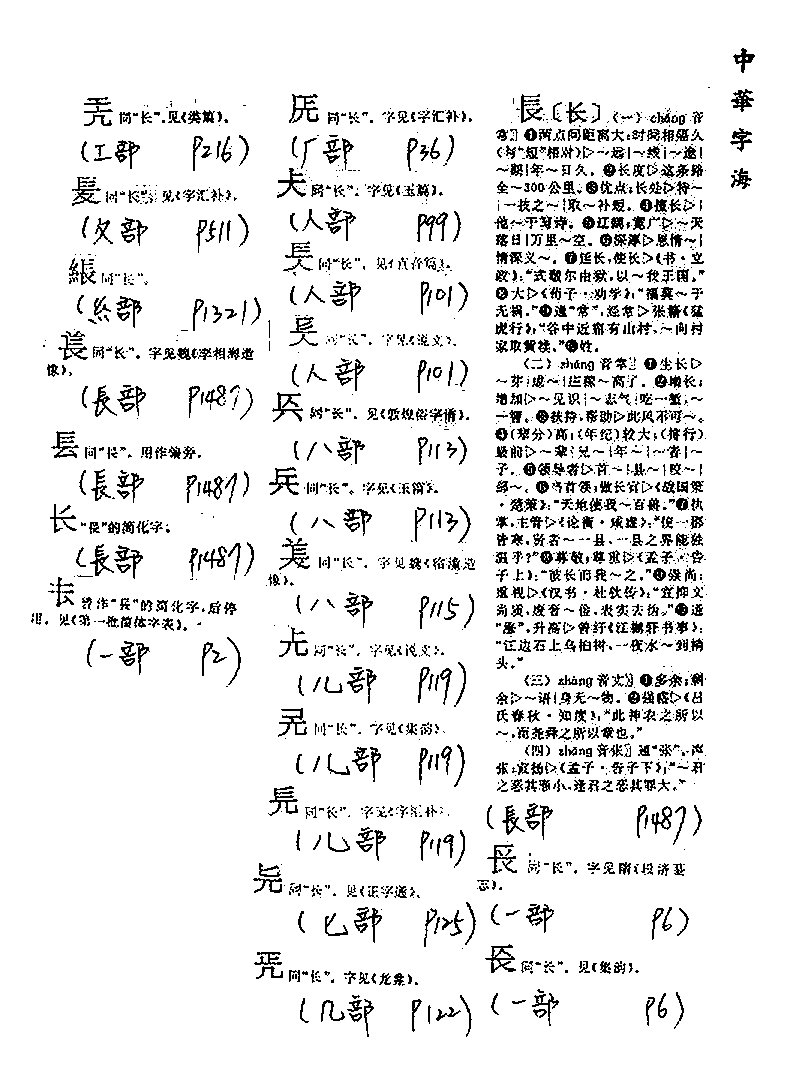 中華字海
長〔长〕(一) zhǎng 音
常〗❶两点间距离大;时间相隔久
(与“短”相对)▷～远|～线|～途|
～眠|年～日久。❷长度▷这条路
全～300公里。❸优点;长处▷特～
|一技之～|取～补短。❹擅长▷|
他～于写诗。❺辽阔;宽广▷～天
落日|万里～空。❻深厚▷恩情～|
情深义～。❼延长,使长▷《书·立
政》:“式敬尔由狱,以～我王国。”
❽大▷《荀子·劝学》:“福莫～于
无祸。”❾通“常”,经常▷张籍《猛
虎行》:“谷中近窟有山村,～向村
家取黄犊。”❿姓。
(二) zhǎng 音掌〗❶生长▷
～芽|成～|庄稼～高了。❷增长;
增加▷～见识|～志气|吃一堑,～
一智。❸扶持,帮助▷此风不可～。
❹(辈分)高;(年纪)较大;(排行)
最前▷～辈|兄～|年～|～者|～
子。❺领导者▷首～|县～|校～|
部～。❻当首领;做长官▷《战国策
·楚策》:“天地使我～百兽。”❼执
掌,主管▷《论衡·
皆寒,贤者～一县,一县之界能独
温乎?”❽尊敬;尊重▷《孟子·告
子上》:“彼长而我～之。”❾崇尚;
重视▷《汉书·杜钦传》:“宜抑文
尚质,废奢～俭,表实去伪。”❿通
“涨”,升高▷曾纡《江樾轩书事》:
“江边石上乌桕树,一夜水～到梢
头。”
(三) zhàng 音丈〗❶多余;剩
余▷～语|身无～物。❷
氏春秋·知度》:“此神农之所以
～,而尧舜之所以章也。”
(四) zhāng 音张〗通“张”,声
张;宣扬▷《孟子·告子下》:“～君
之恶其罪小,逢君之恶其罪大。”
(長部 P1487)
同“长”。字见隋《段济墓
志》。
(一部 P6)
同“长”。见《集韵》。
(一部 P6)
同“长”。字见《字汇补》。
(厂部 P36)
同“长”。字见《玉篇》。
(人部 P99)
同“长”。见《直音篇》。
(人部 P101)
同“长”。字见《说文》。
(人部 P101)
同“长”。见《敦煌俗字谱》。
(八部 P113)
同“长”。字见《玉篇》。
(八部 P113)
同“长”。字见魏《
像》。
(八部 P115)
同“长”。字见《说文》。
(儿部 P119)
同“长”。字见《集韵》。
(儿部 P119)
同“长”。字见《字汇补》。
(儿部 P119)
同“长”。见《正字通》。
(匕部 P125)
同“长”。字见《龙龛》。
(几部 P122)
同“长”。见《类篇》。
(工部 P216)
同“长”。见《字汇补》。
(夂部 P511)
同“长”。
(糸部 P1321)
同“长”。字见魏《李相海造
像》。
(長部 P1487)
镸 同“長”。用作偏旁。
(長部 P1487)
长 “長”的简化字。
(長部 P1487)
曾作“長”的简化字,后停
用。见《第一批简体字表》。
(一部 P2)